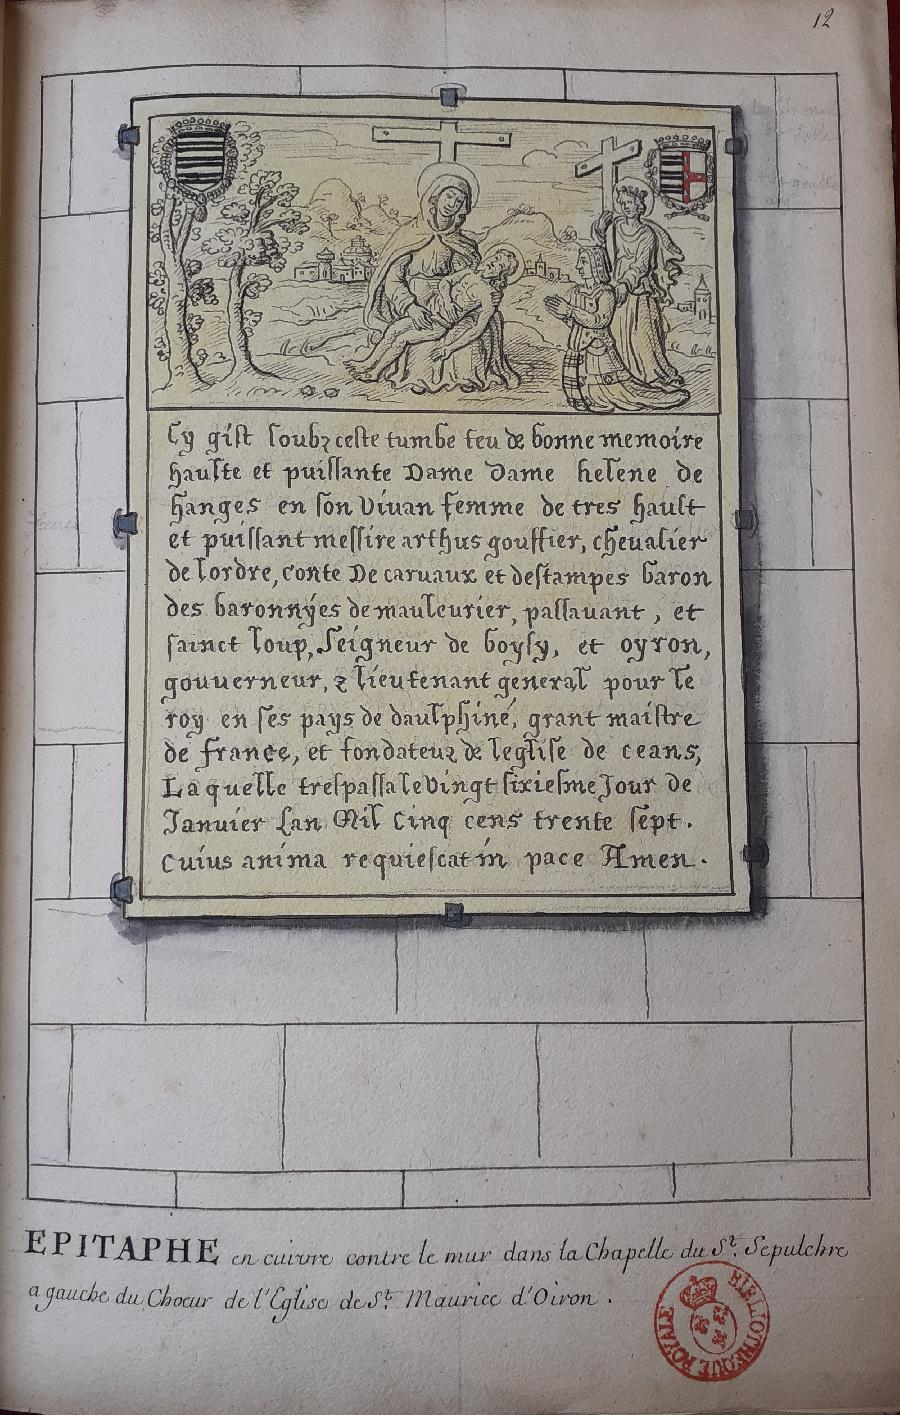 12
Cy gist soubz ceste tumbe feu de bonne memoire
haulte et puissante Dame Dame helene de
hanges en son vivan femme de tres hault
et puissant messire arthus gouffier, chevalier
de lordre, conte De carvaux et destampes baron
des baronnÿes de mauleurier, passavant, et
sainct loup, Seigneur de boysy, et oyron,
gouverneur, & lieutenant general pour le
roy en ses pays de daulphiné, grant maistre
de france, et fondateur de leglise de ceans,
Laquelle trespassa le vingt sixiesme Jour de
Janvier Lan Mil Cinq cens trente sept.
cuius anima requiescat in pace Amen.
EPITAPHE en cuivre contre le mur dans la Chapelle du St. Sepulchre
a gauche du Choeur de l'Eglise de St. Maurice d'Oiron.
BIBLIOTHEQUE ROYALE